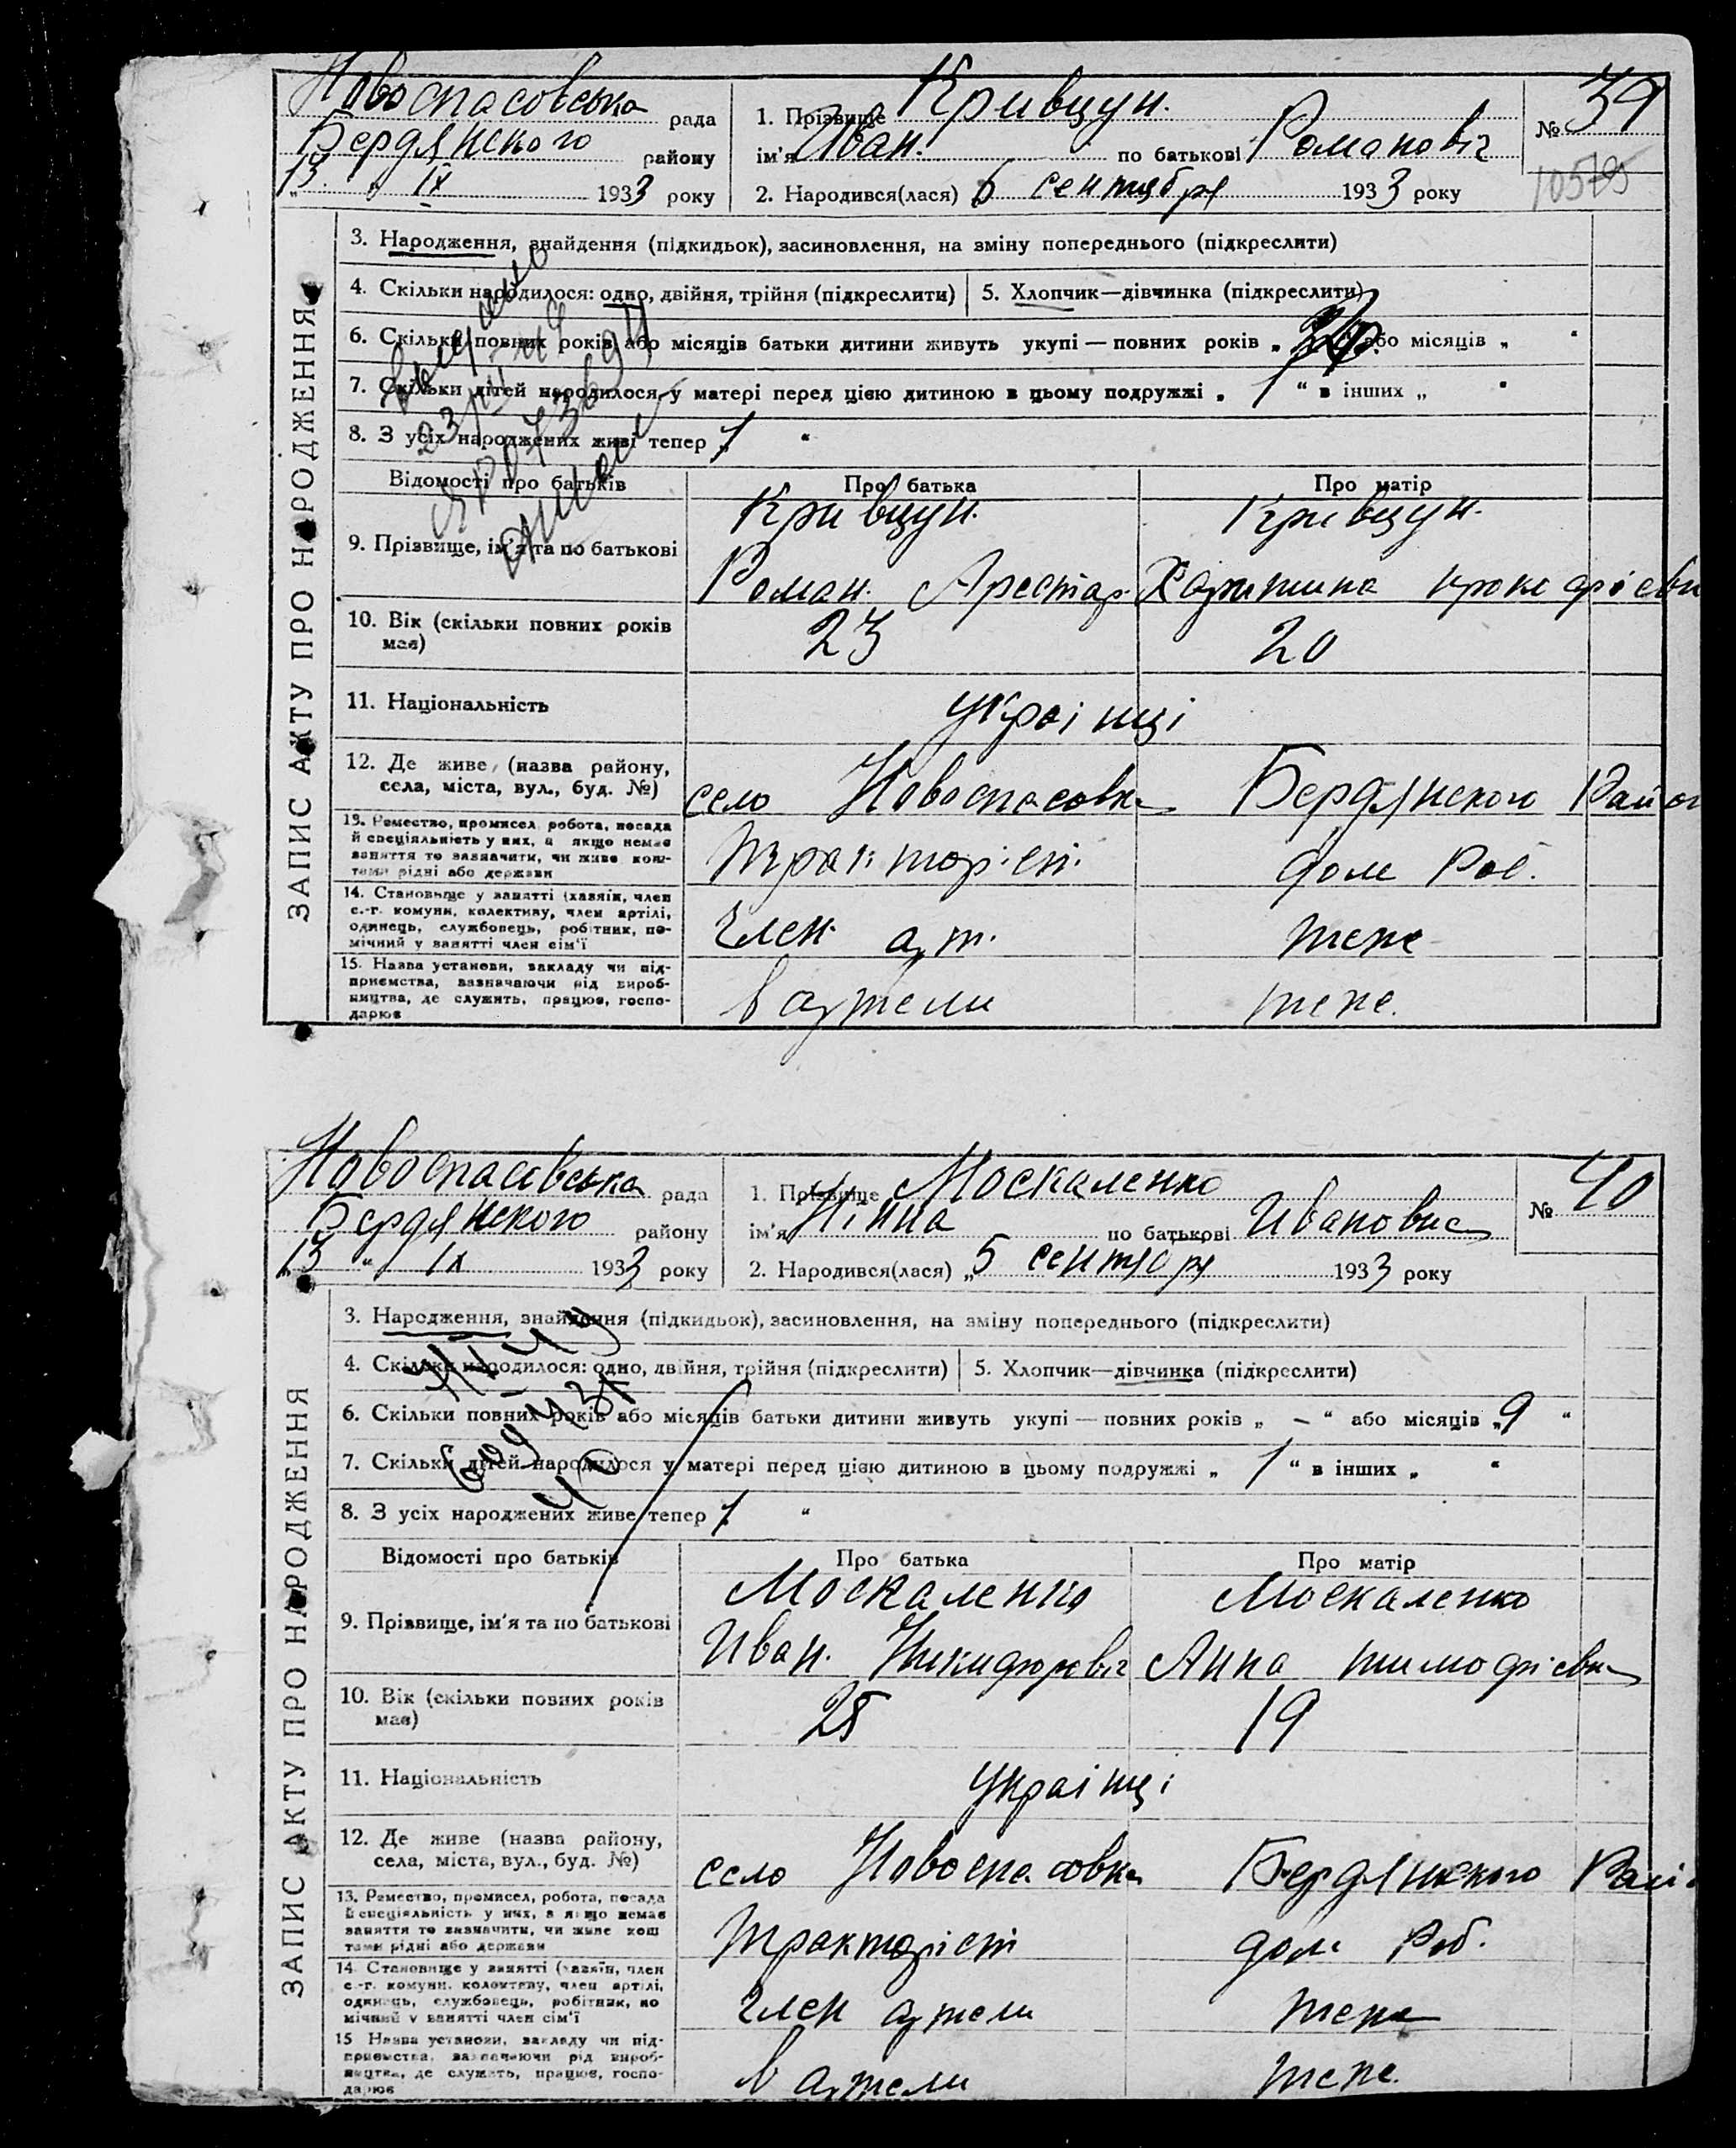 Новоспасовська рада
Бердянского району
"13 " IX 1933 року
1. Прізвище Кривцун.
ім'я Иван. по батькові Романовіч
2. Народився(лася) 6 сентября 1933 року
№ 39
10579
ЗАПИС АКТУ ПРО НАРОДЖЕННЯ
3. Народження, знайдення (підкидьок), засиновлення, на зміну попереднього (підкреслити)
4. Скільки народилося: одно, двійня, трійня (підкреслити)
5. Хлопчик—дівчинка (підкреслити)
6. Скільки повних років або місяців батьки дитини живуть укупі — повних років „ або місяців „ "
7. Скільки дітей народилося у матері перед цією дитиною в цьому подружжі „ 1 " в інших „ "
8. З усіх народжених живі тепер „1 "
Відомості про батьків
Про батька
Про матір
9. Прізвище, ім'я та по батькові
Кривцун.
Роман. Арестар.
Кривцун.
10. Вік (скільки повних років має)
23
20
11. Національність
украінці
12. Де живе, (назва району,
села, міста, вул., буд. №)
село Новоспасовка Бердянского Район
13. Ремество, промисел, робота, посада
й спеціяльність у них, а якщо немає
заняття то зазначити, чи живе кош-
тами рідні або держави
Тракторіст.
дом Роб.
14. Становище у занятті (хазяїн, член
с.-г. комуни, колективу, член артілі,
одинець, службовець, робітник, по-
мічний у занятті член сім'ї
член арт.
15. Назва установи, закладу чи під-
приємства, зазначаючи рід вироб-
ництва, де служить, працює, госпо-
дарює
в артели
Новоспасівська рада
Бердянского району
„13 " IX 1933 року
1. Прізвище Москаленко
ім'я Нінна по батькові Ивановна
2. Народився(лася) „5 сентября 1933 року
№ 40
ЗАПИС АКТУ ПРО НАРОДЖЕННЯ
3. Народження, знайдення (підкидьок), засиновлення, на зміну попереднього (підкреслити)
4. Скільки народилося: одно, двійня, трійня (підкреслити)
5. Хлопчик—дівчинка (підкреслити)
6. Скільки повних років або місяців батьки дитини живуть укупі — повних років „ – " або місяців „9 "
7. Скільки дітей народилося у матері перед цією дитиною в цьому подружжі „ 1 " в інших „ "
8. З усіх народжених живе тепер 1 "
Відомості про батьків
Про батька
Про матір
9. Прізвище, ім'я та по батькові
Москаленко
Иван. Никифоровіч
Москаленко
Анна тимофієвна
10. Вік (скільки повних років має)
25
19
11. Національність
украінці
12. Де живе (назва району,
села, міста, вул., буд. №)
село Новоспасовка Бердянского Рай.
13. Ремество, промисел, робота, посада
й спеціяльність у них, а якщо немає
заняття то зазначити, чи живе кош
тами рідні або держави
Тракторіст
дом Роб.
14. Становище у занятті (хазяїн, член
с.-г. комуни, колективу, член артілі,
одинець, службовець, робітник, по
мічний у занятті член сім'ї
член артели
15 Назва установи, закладу чи під-
приємства, зазначаючи рід вироб-
ництва, де служить, працює, госпо-
дарює
в артели